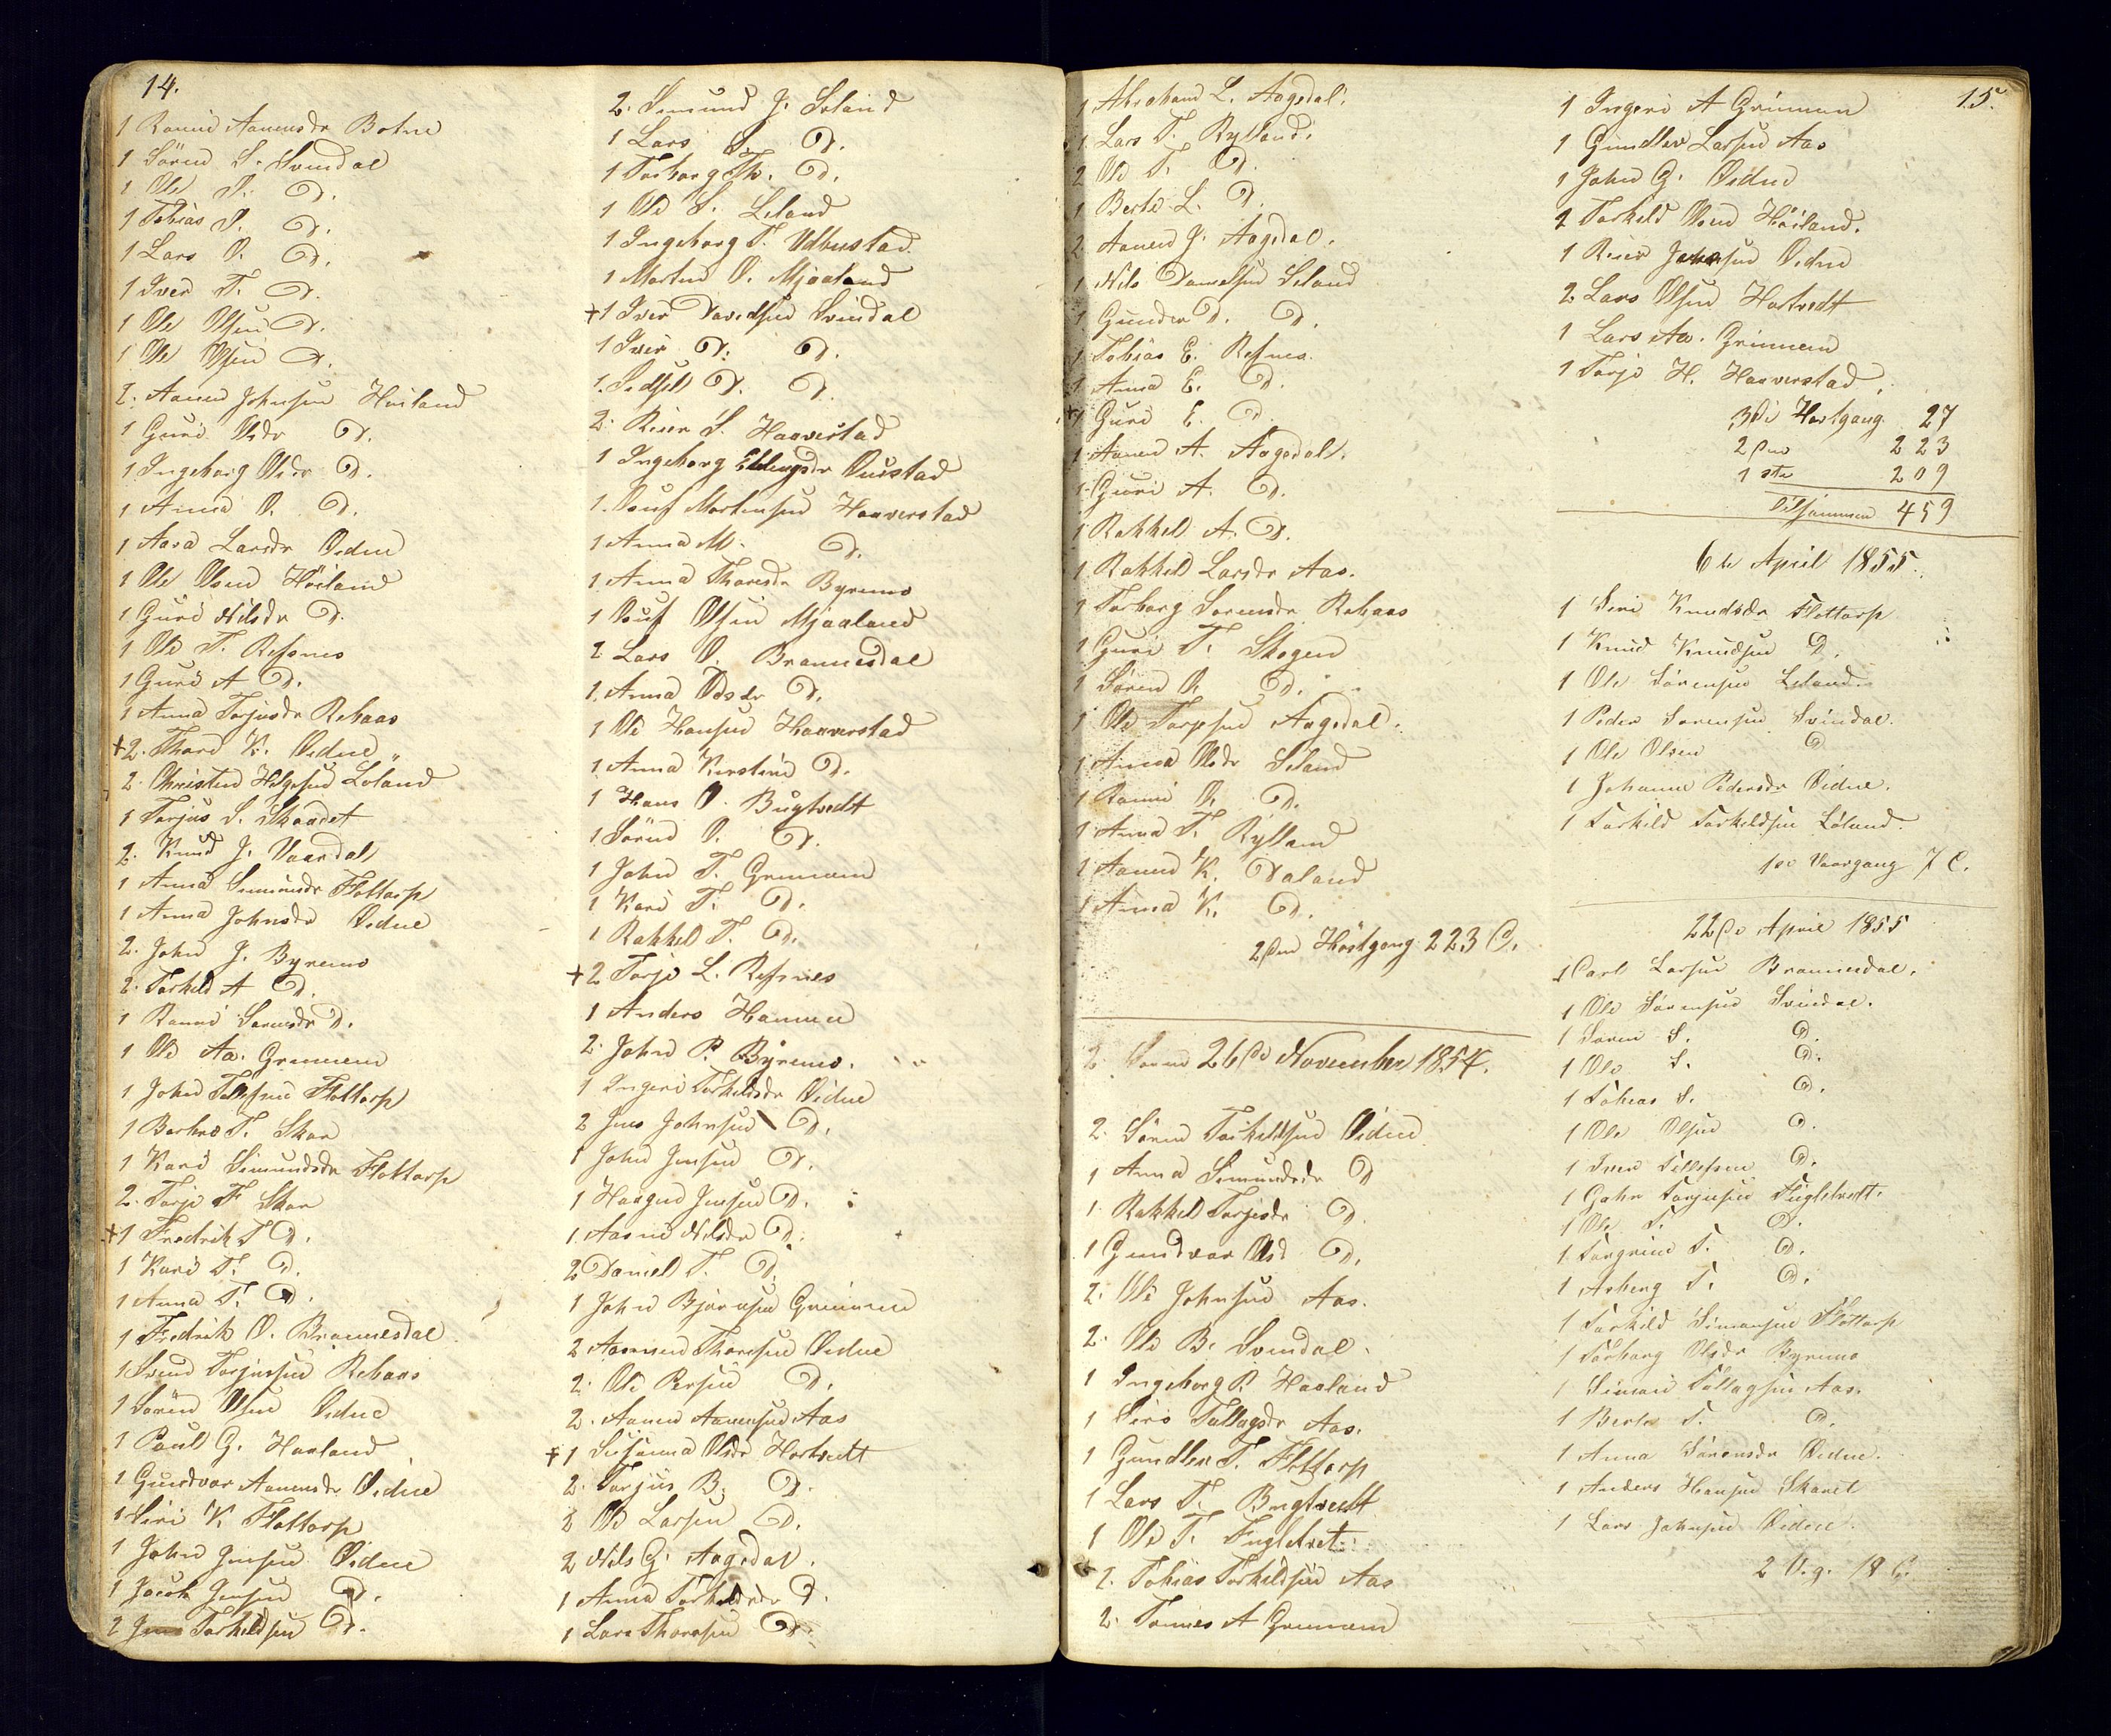 14.
1 Ranni Aanensdr Botne
1 Sören S. Svindal
1 Ole S. D.
1 Tobias S. D.
1 Lars O. D.
1 Iver T. D.
1 Ole Olsen D.
1 Ole Olsen D.
2. Aanen Johnsen Höiland
1 Guri Olsdr D.
1 Ingeborg Olsdr D.
1 Anna O. D.
1 Aasa Larsdr Eidne
1 Ole Olsen Höiland
1 Guri Nilsdr D.
1 Ole T. Refsnes
1 Guri A D.
1 Anna Torjusdr Rebaas
+2. Thore K. Eidne
2. Christen Helgesen Loland
1 Torjus S. Skaaret
2. Knud J. Vaardal
1 Anna Simonsdr Flottorp
1 Anna Johnsdr Eidne
2. John J. Byremo
2. Torkild A D.
1 Ranni Sørensdr D.
1 Ole Aa. Grimmem
1 John Tollefsen Flottorp
1 Barbro T. Skar
1 Kari Simundsdr Flottorp
2. Torje F Skar
+1 Fredrik T D.
1 Kari T. D.
1 Anna T. D.
1 Fredrik O. Brannesdal
1 Svend Torjussen Rebaas
1 Sören Olsen Eidne
1 Paul G. Haaland
1 Gundvor Aanensdr Eidne
1 Siri K Flottorp
1 John Jensen Eidne
1 Jacob Jensen D.
2 Jens Torkildsen D.
2. Simund J. Loland
1 Lars S. D.
1 Torborg Th. D.
1 Ole S. Leland
1 Ingeborg T. Udbustad
1 Morten O. Mjaaland
+1 Iver Davidsen Svindal
1 Iver D. D.
1. Sidsel D. D.
2. Reier S. Haaverstad
1 Ingeborg Ellingsdr Quistad
1. Ouf Mortensen Haaverstad
1 Anna M. D.
1. Anna Thoresdr Byremo
1 Ouf Olsen Mjaaland
2 Lars O. Brannesdal
1. Anna Olsdr D.
1 Ole Hansen Haaverstad
1. Anna Kirstine D.
1 Hans O. Bugtvedt
1 Sören O. D.
1 John T. Grimmem
1 Kari T. D.
1 Rakkel T. D.
+2 Torje L. Refsnes
1 Anders Hammen
2. John P. Byremo.
1 Ingeri Torkildsdr Eidne
2 Jens Johnsen D.
1 John Jensen D.
1 Haagen Jensen D.
1. Aasne Nilsdr D.
2 Daniel T. D.
1 John Bjørnsen Grimmem
2 Aanen Thoresen Eidne
2. Ole Persen D.
2. Aanen Aanensen Aas
+1 Susanna Olsdr Hortvedt
2. Torjus B. D.
2 Ole Larsen D.
2 Nils G. Aagedal.
1 Anna Torkildsdr D.
1 Lars Thoresen D.
1 Abraham L. Aagedal.
1 Lars T. Rylland.
2 Ole T. D.
1 Berte L. D.
2 Aanen J. Aagedal.
1 Nils Danielsen Leland
1 Gunder D. D.
1 Tobias E. Refsnes.
1 Anna E. D.
+1 Guri E. D.
1 Aanen A. Aagedal.
1 Guri A. D.
1 Rakkel A. D.
1 Rakkel Larsdr Aas.
1 Torborg Sorensdr Rebaas
1 Guri T. Skogen
1 Sören O. D.
1 Ole Torjesen Aagedal.
1 Anna Olsdr Leland
1 Ranni O. D.
1 Anna T. Rylland
1 Aanen K. Daland
1 Anna K. D.
2den Höstgang 223 C.
26de November 1854.
2. Sören Torkildsen Eidne
1 Anna Simundsdr D
1 Rakkel Torjesdr D.
1 Gundvor Olsd D.
2. Ole Johnsen Aas.
2. Ole B. Svindal.
1 Ingeborg P. Haaland
1 Siri Tallagsdr Aas.
1 Gundlev T. Flottorp
1 Lars T. Bugtvedt
1 Ole T. Fugletvet
2. Tobias Torkildsen Aas
2. Tønnes A Grimmem
15.
1 Ingeri A Grimmem
1 Gundlev Larsen Aas
1 John G. Eidne
2 Torkild Olsen Höiland.
1 Reier Johnsen Eidne
2 Lars Olsen Hortvedt
1 Lars Aa. Grimmem
1 Torje H. Haaverstad
3di Hostgang 27
2den 223
1ste 209
Tilsammen 459
6te April 1855.
1 Siri Knudsdr Flottorp
1 Knud Knudsen D.
1 Ole Sörensen Leland
1 Peder Sorensen Svindal.
1 Ole Olsen D
1 Johanne Pedersdr Eidne.
1 Torkild Torkildsen Loland.
1ste Vaargang 7 C.
22de April 1855
1 Carl Larsen Brannesdal.
1 Ole Sörensen Svindal.
1 Soren S. D.
1 Ole S. D.
1 Tobias S. D.
1 Ole Olsen D.
1 Iver Tollefsen D.
1 Gahr Torjusen Fugletvedt.
1 Ole T. D.
1 Torgrim T. D.
1 Asberg T. D.
1 Torkild Simonsen Flottorp
1 Torborg Olsdr Byremo
1 Simon Tallagsen Aas.
1 Berte T. D.
1 Anna Sörensdr Eidne.
1 Anders Hansen Skaret
1 Lars Johnsen Eidne
2 V.g. 18 C.